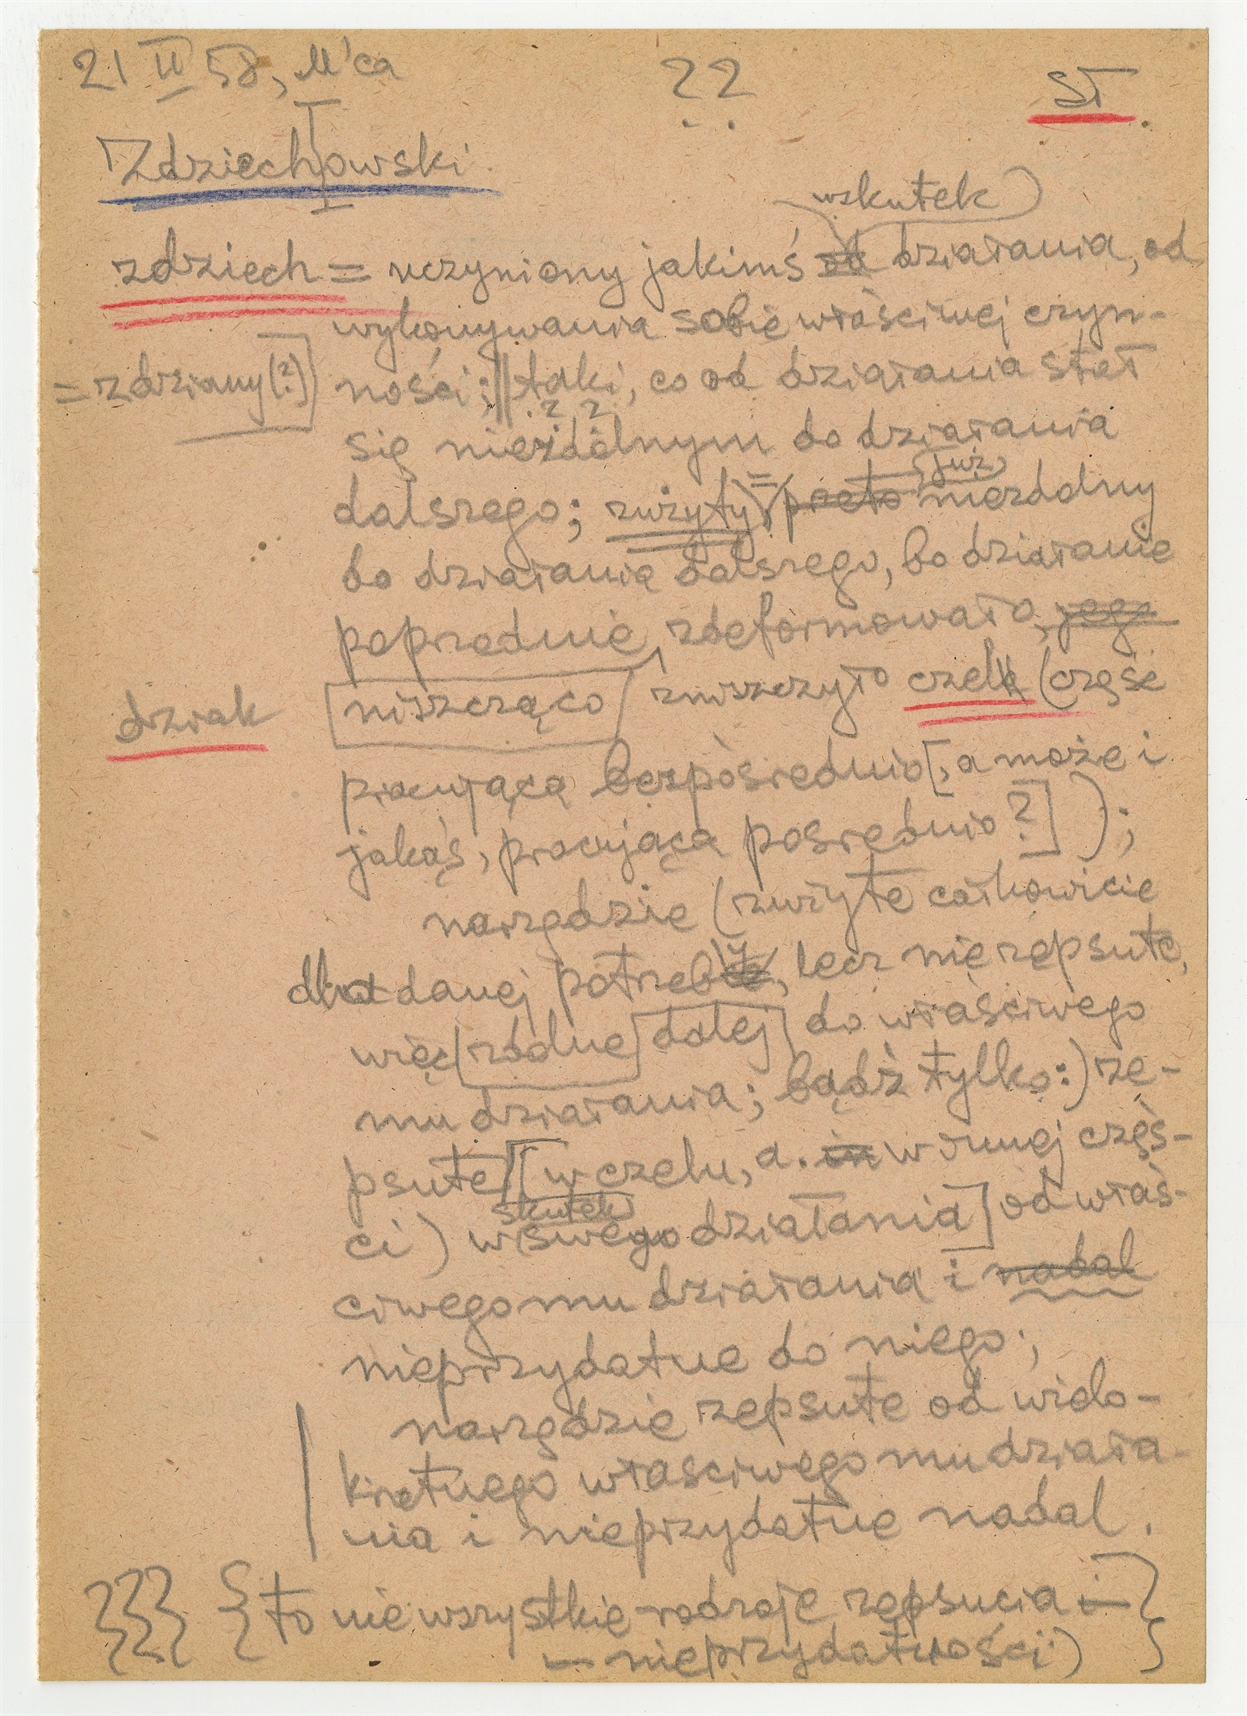 21 II 58, M'ca ?? ST.
Zdziechowski
wskutek)
zdziech = uczyniony jakimś od działania, od
wykonywania sobie właściwej czyn-
= zdziany(?) ności; || taki, co od działania stał
się niezdolnym do działania
(już)
dalszego; zużyty = przeto niezdolny
do działania dalszego, bo działanie
poprzednie, zdeformowało, jego
dziak niszcząco zniszczyło czelu (część
pracującą bezpośrednio [, a może i
jakąś, pracującą pośrednio?] );
narzędzie (zużyte całkowicie
dla danej potrzeby, lecz nie zepsute,
więc [zdolne] dalej do właściwego
mu działania; bądź tylko:) ze-
psute [[w czelu, a. in w innej częś-
skutek
ci) w swego działania] od właś-
ciwego mu działania i nadal
nieprzydatne do niego;
narzędzie zepsute od wielo-
kretnego właściwego mu działa-
nia i nieprzydatne nadal.
}}} { to nie wszystkie rodzaje zepsucia i }
— nieprzydatności)